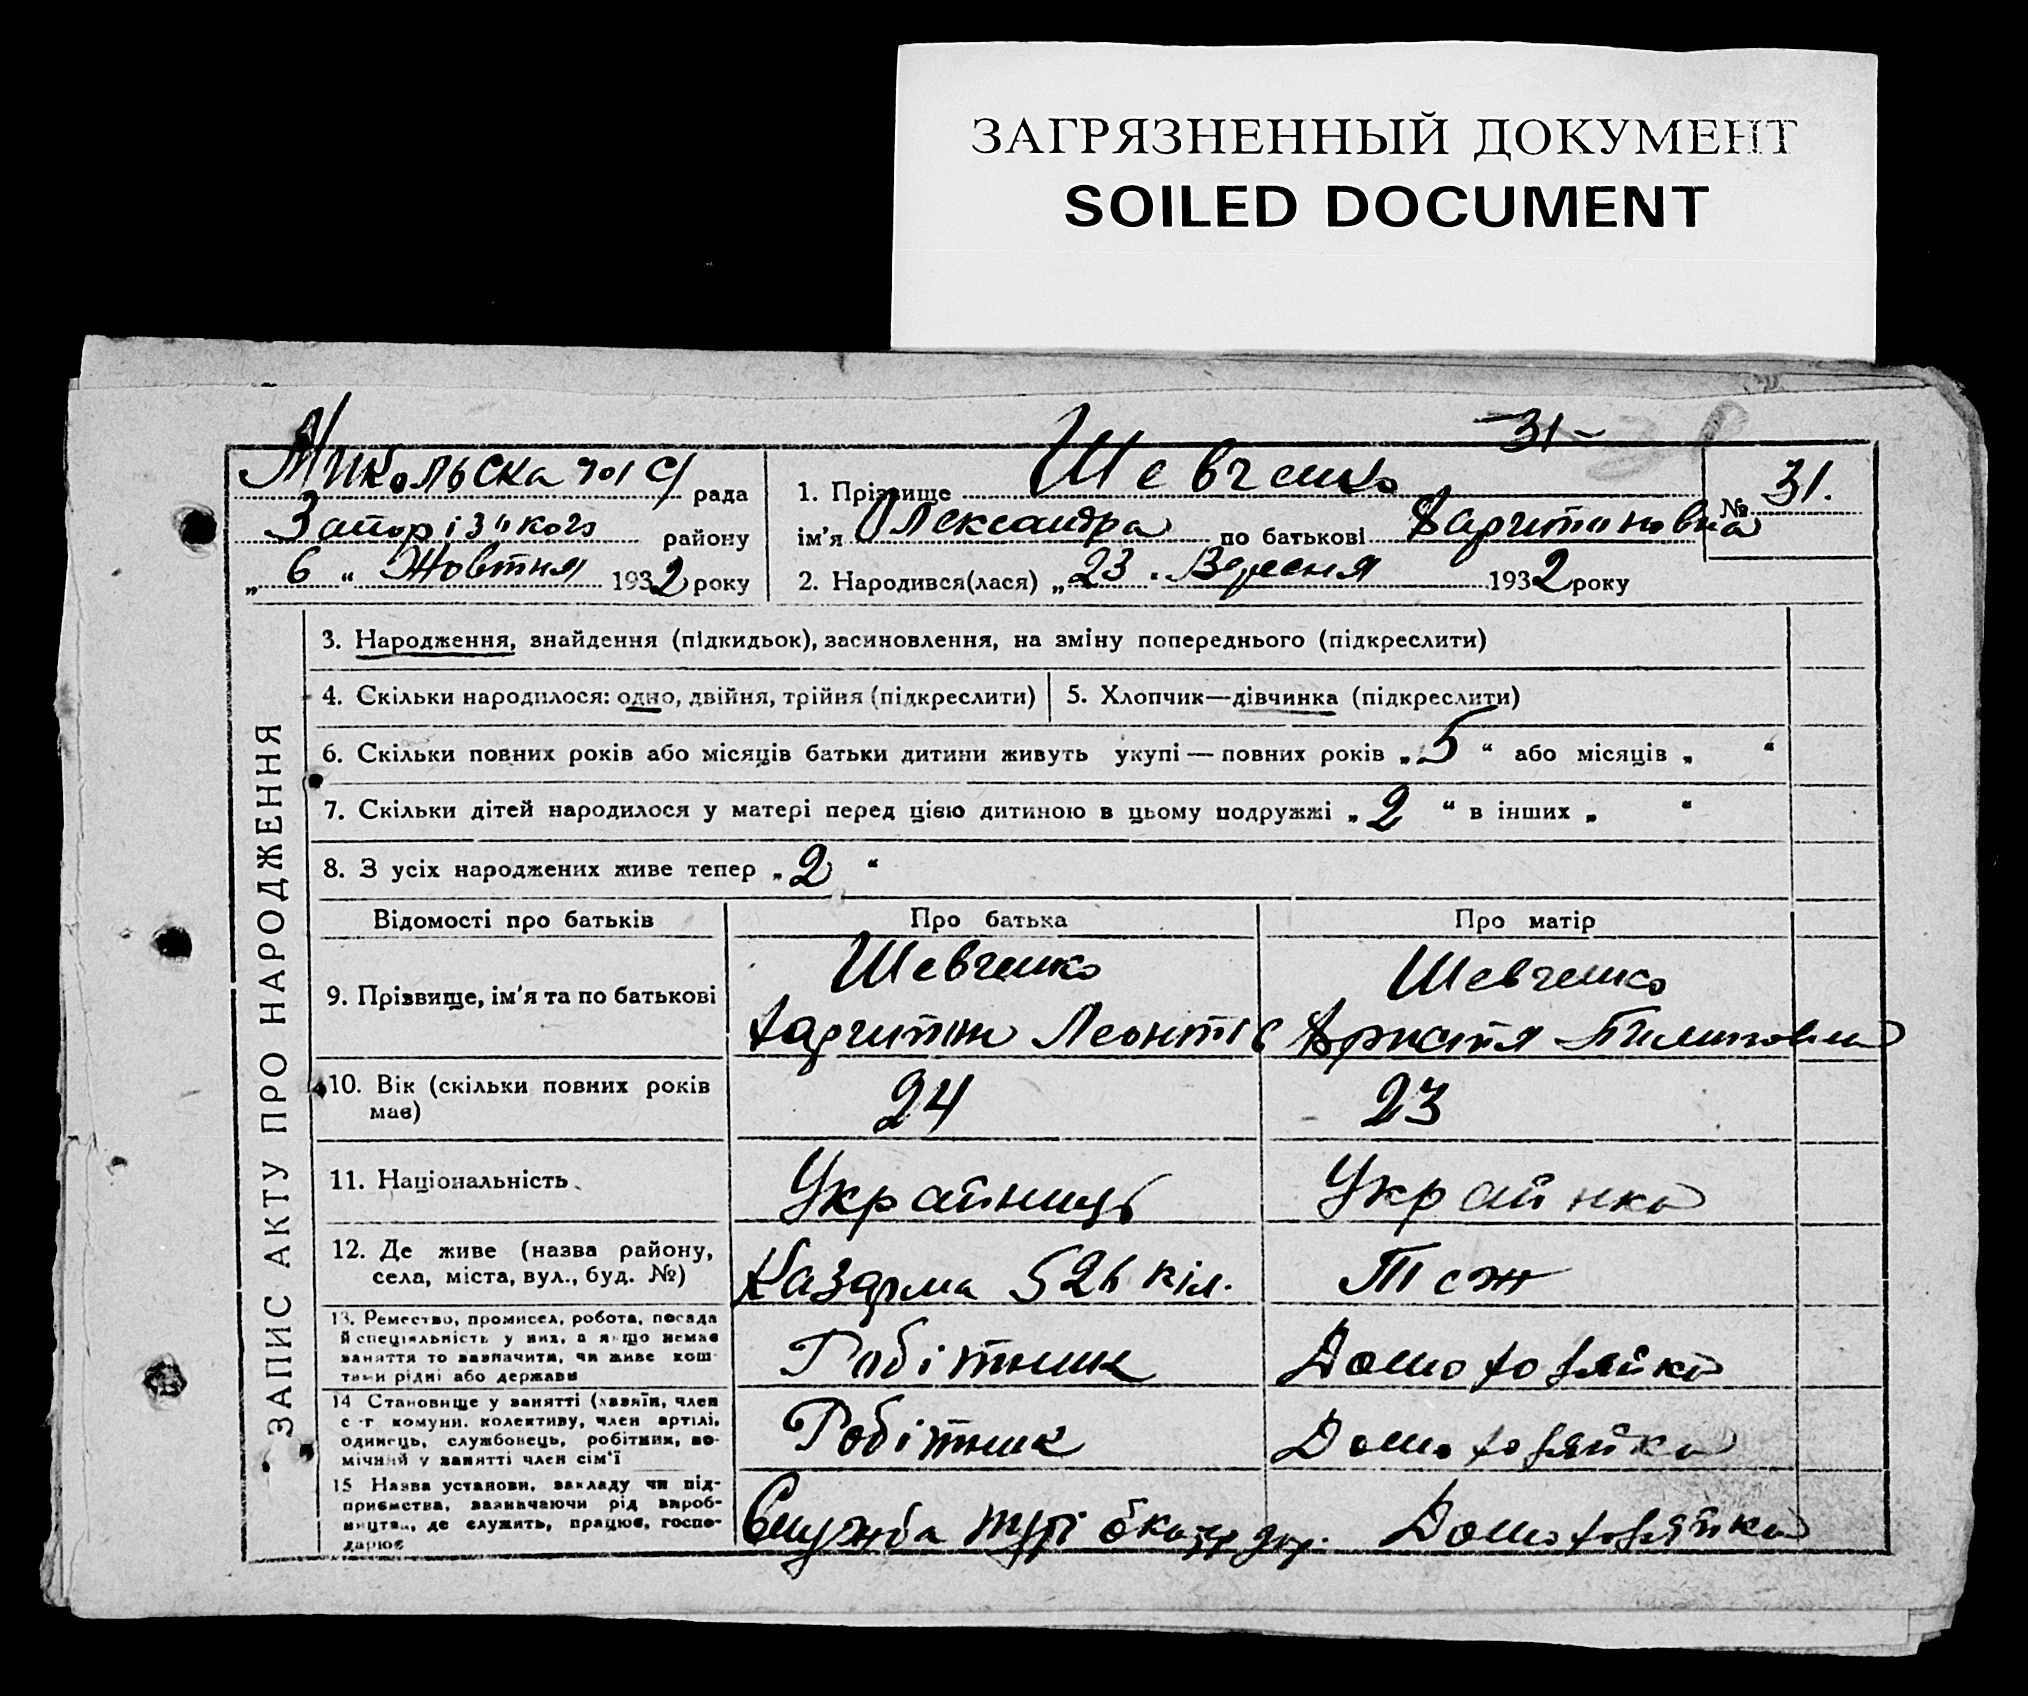 ЗАГРЯЗНЕННЫЙ ДОКУМЕНТ
SOILED DOCUMENT
31-
Микольська рада
Запорізького району
„6“ Жовтня 1932 року
1. Прізвище Шевченко
ім'я Олександра по батькові Харитоновна
№ 31.
2. Народився(лася) „23“ Вересня 1932 року
ЗАПИС АКТУ ПРО НАРОДЖЕННЯ
3. Народження, знайдення (підкидьок), засиновлення, на зміну попереднього (підкреслити)
4. Скільки народилося: одно, двійня, трійня (підкреслити)
5. Хлопчик—дівчинка (підкреслити)
6. Скільки повних років або місяців батьки дитини живуть укупі — повних років „5“ або місяців „ “
7. Скільки дітей народилося у матері перед цією дитиною в цьому подружжі „2“ в інших „ “
8. З усіх народжених живе тепер „2“
Відомості про батьків
Про батька
Про матір
9. Прізвище, ім'я та по батькові
Шевченко
Харитон Леонтів
Шевченко
Христя Пилиповна
10. Вік (скільки повних років
має)
24
23
11. Національність
Українець
Українка
12. Де живе (назва району,
села, міста, вул., буд. №)
Казарма 526 кіл.
Теж
13. Ремество, промисел, робота, посада
й спеціяльність у них, а якщо немає
заняття то зазначити, чи живе кош-
тами рідні або держави
Робітник
Домохозяйка
14 Становище у занятті (хазяїн, член
с.-г. комуни, колективу, член артілі,
одинець, службовець, робітник, по-
мічний у занятті член сім'ї
Робітник
Домохозяйка
15 Назва установи, закладу чи під-
приємства, зазначаючи рід вироб-
ництва, де служить, працює, госпо-
дарює
Служба путі
Домохозяйка